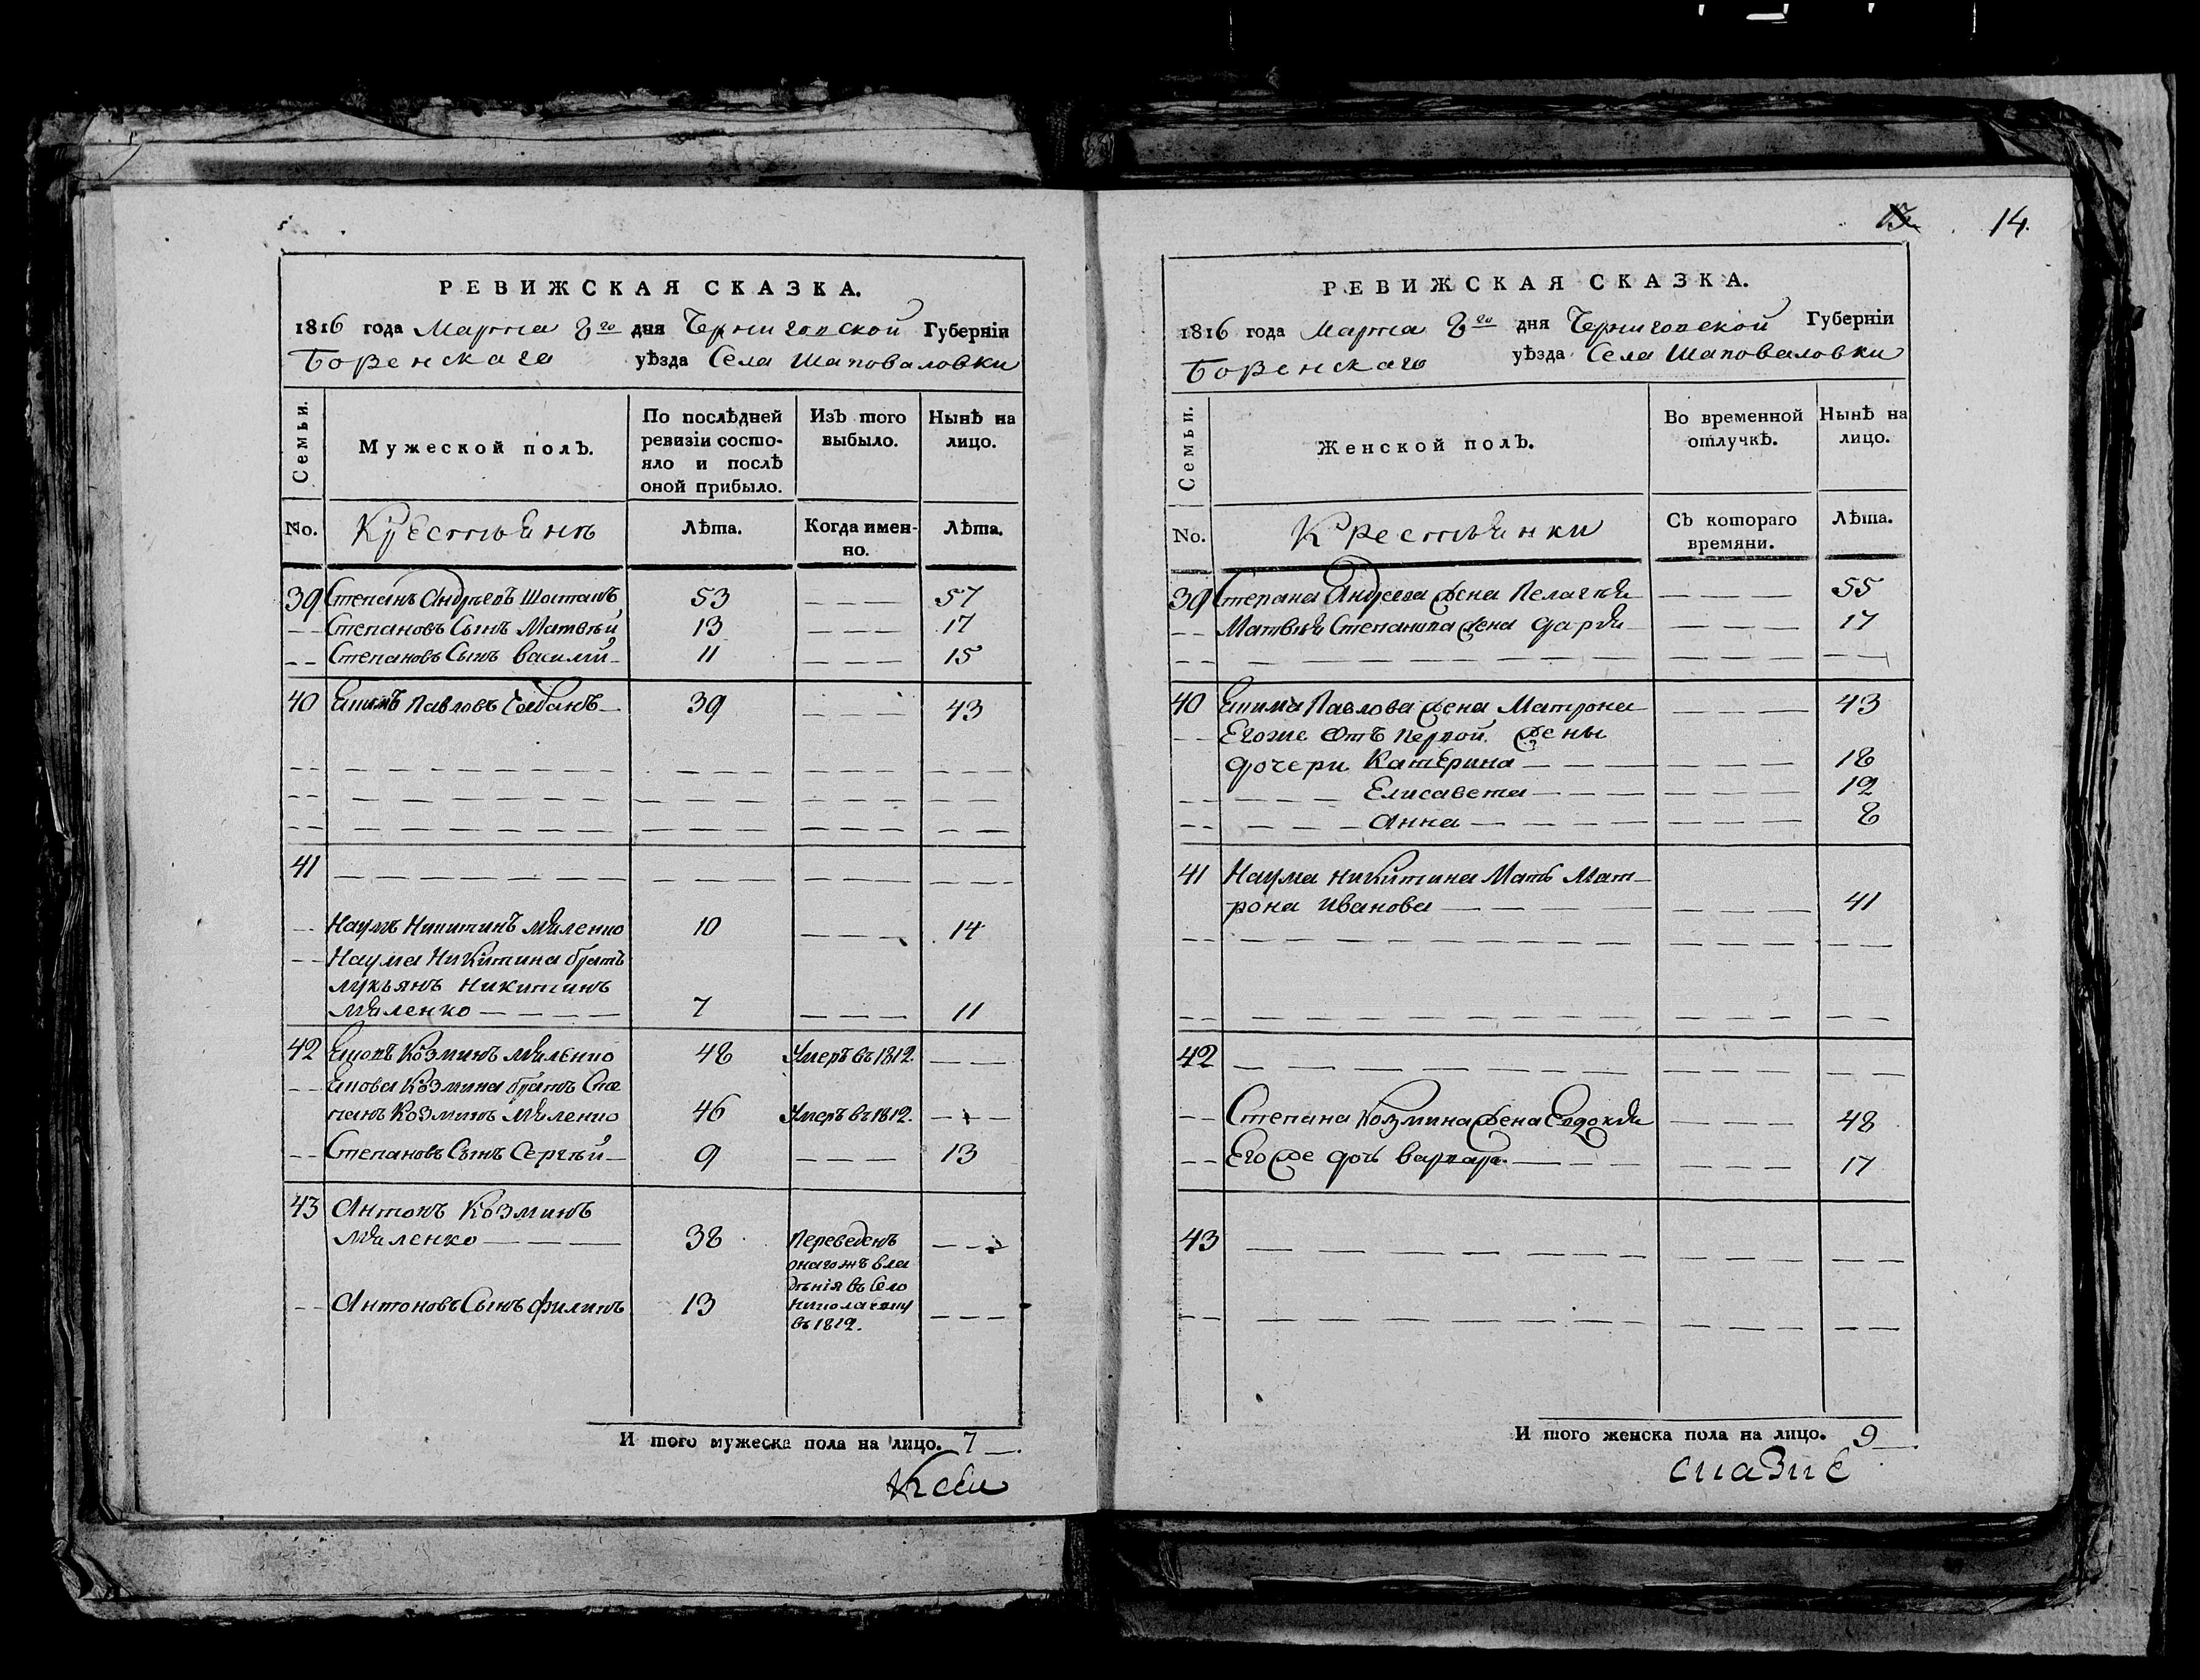 13 14.
РЕВИЖСКАЯ СКАЗКА.
1816 года Марта 8го дня Черниговской Губерніи
Борзенскаго уѣзда Села Шаповаловки
Семьи.
Мужеской полъ.
По послѣдней ревизіи состояло и послѣ оной прибыло.
Изъ того выбыло.
Нынѣ на лицо.
No. Крестьянъ Лѣта. Когда именно. Лѣта.
39 Степанъ Андреевъ 53 — — — 57
— — Степановъ Сынъ Матвѣй 13 — — — 17
— — Степановъ Сынъ Василій — 11 — — — 15
40 Павловъ 39 — — — 43
41
— — Наумъ Никитинъ Мяленко 10 — — — 14
— — Наума Никитина братъ
Лукьянъ Никитинъ
Мяленко — — — — 7 — — — 11
42 Козминъ Мяленко 48 Умеръ въ 1812. — —
— — Козмина братъ Сте
панъ Козминъ Мяленко 46 Умеръ въ 1812. — — —
— — Степановъ Сынъ Сергѣй — 9 — — — 13
43 Антонъ Козминъ
Мяленко — — — 38 Переведенъ — — —
онагожъ вла
дѣнія въ Село
— — Антоновъ Сынъ Филипъ 13
въ 1812. — — —
И того мужеска пола на лицо. 7 —.
К сей
РЕВИЖСКАЯ СКАЗКА.
1816 года Марта 8го дня Черниговской Губерніи
Борзенскаго уѣзда Села Шаповаловки
Семьи.
Женской полъ.
Во временной отлучкѣ.
Нынѣ на лицо.
No. Крестьянки Съ котораго времяни. Лѣта.
39 Степана Андреева жена Пелагея — — — 55
— — Матвѣя Степанова жена Дарья — — — — 17
40 Павлова жена Матрона — — — 43
— — Егоже Отъ первой жены
дочери Катерина — — — — — — — 18
— — — — — — Елисавета — — — — — — — 12
— — — — — — Анна — — — — — — — — 8
41 Наума Никитина Мать Мат—
рона Иванова — — — — — — — 41
42
— — Степана Козмина жена Евдокія — — — 48
— — Его же дочь Варвара — — — — — — 17
43
И того женска пола на лицо. 9 —.
сказке